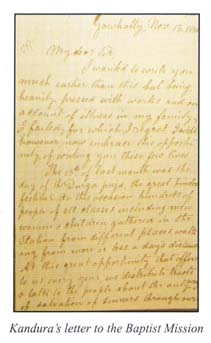 Gowhatty, Nov. 15,
My dear Sir,
I wanted to write you
much earlier than this but being
heavily pressed with works and on
account of illness in my family,
I failed, for which I regret. I will
however now embrace this opportu-
nity of sending you these few lines.
The 19th of last month was the
day of the Durga puja, the great hindoo
festival. On this occasion hundreds of
people of all classes including men
women & children gathered in the
station from different places walk-
ing from more or less a day's distance
At this great opportunity that offers
to us every year, we distribute tracts
& talks to the people about the only
of salvation of sinners through our
Kandura's letter to the Baptist Mission